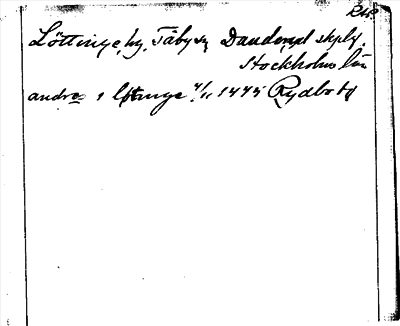 Löttinge, by, Täby sn Danderyd skplg.
Stockholms län
andra i lØttinge 4/11 1475 Rydbo to